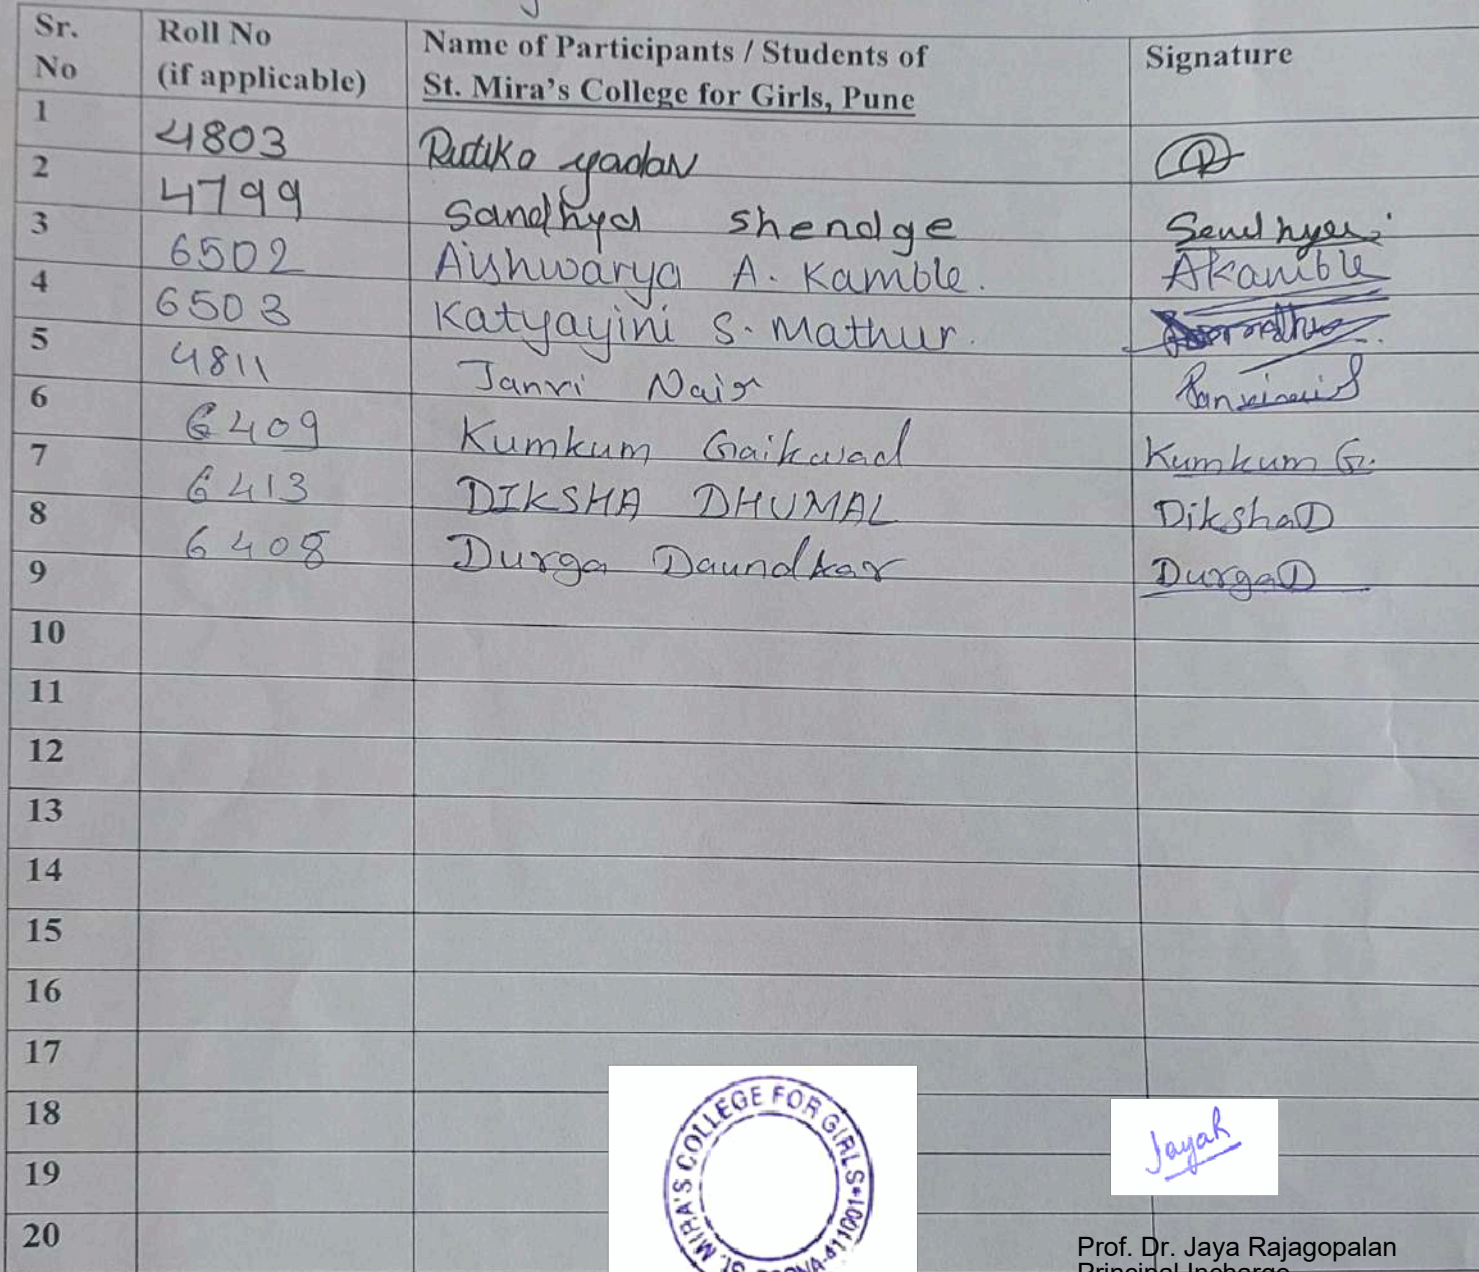 Sr. No
Roll No (if applicable)
Name of Participants / Students of
St. Mira's College for Girls, Pune
Signature
1 4803 Rutika yadav
2 4799 Sandhya shendge Sandhya
3 6502 Aishwarya A. Kamble. AKamble
4 6503 Katyayini S. Mathur.
5 4811 Janvi Nair
6 6409 Kumkum Gaikwad Kumkum G.
7 6413 DIKSHA DHUMAL DikshaD
8 6408 Durga Daundkar DurgaD
9
10
11
12
13
14
15
16
17
18
19
20
ST. MIRA'S COLLEGE FOR GIRLS 411001
JayaR
Prof. Dr. Jaya Rajagopalan
Principal Incharge